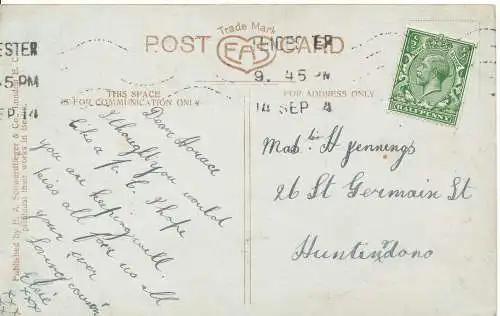 Trade Mark
EAS
POST CARD
THIS SPACE
IS FOR COMMUNICATION ONLY
FOR ADDRESS ONLY
ESTER
5 PM
P 14
LEICESTER
9. 45 PM
14 SEP 4
HALFPENNY
Dear Horace
I thought you would
like a p. c. I hope
you are keeping well.
kiss all for us all
your ever
loving cousin
Elsie
xxxx
Mast H Jennings
26 St Germain St
Huntingdon
Published by E. A. Schwerdtfeger & Co., London E.C.